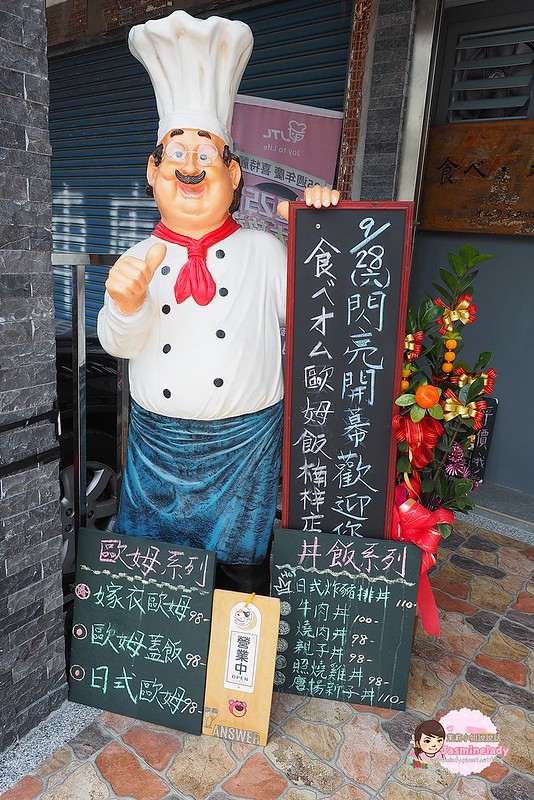 JTL
Joy to Life
食べ
9/28(六)閃亮開幕歡迎您
食べオム歐姆飯楠梓店
歐姆系列
嫁衣歐姆98-
歐姆蓋飯98-
日式歐姆98-
營業中
OPEN
ANSWER
丼飯系列
日式炸豬排丼 110-
牛肉丼 100-
燒肉丼 98-
親子丼 98-
照燒雞丼 98-
唐揚親子丼 110-
平價
Jasminelady